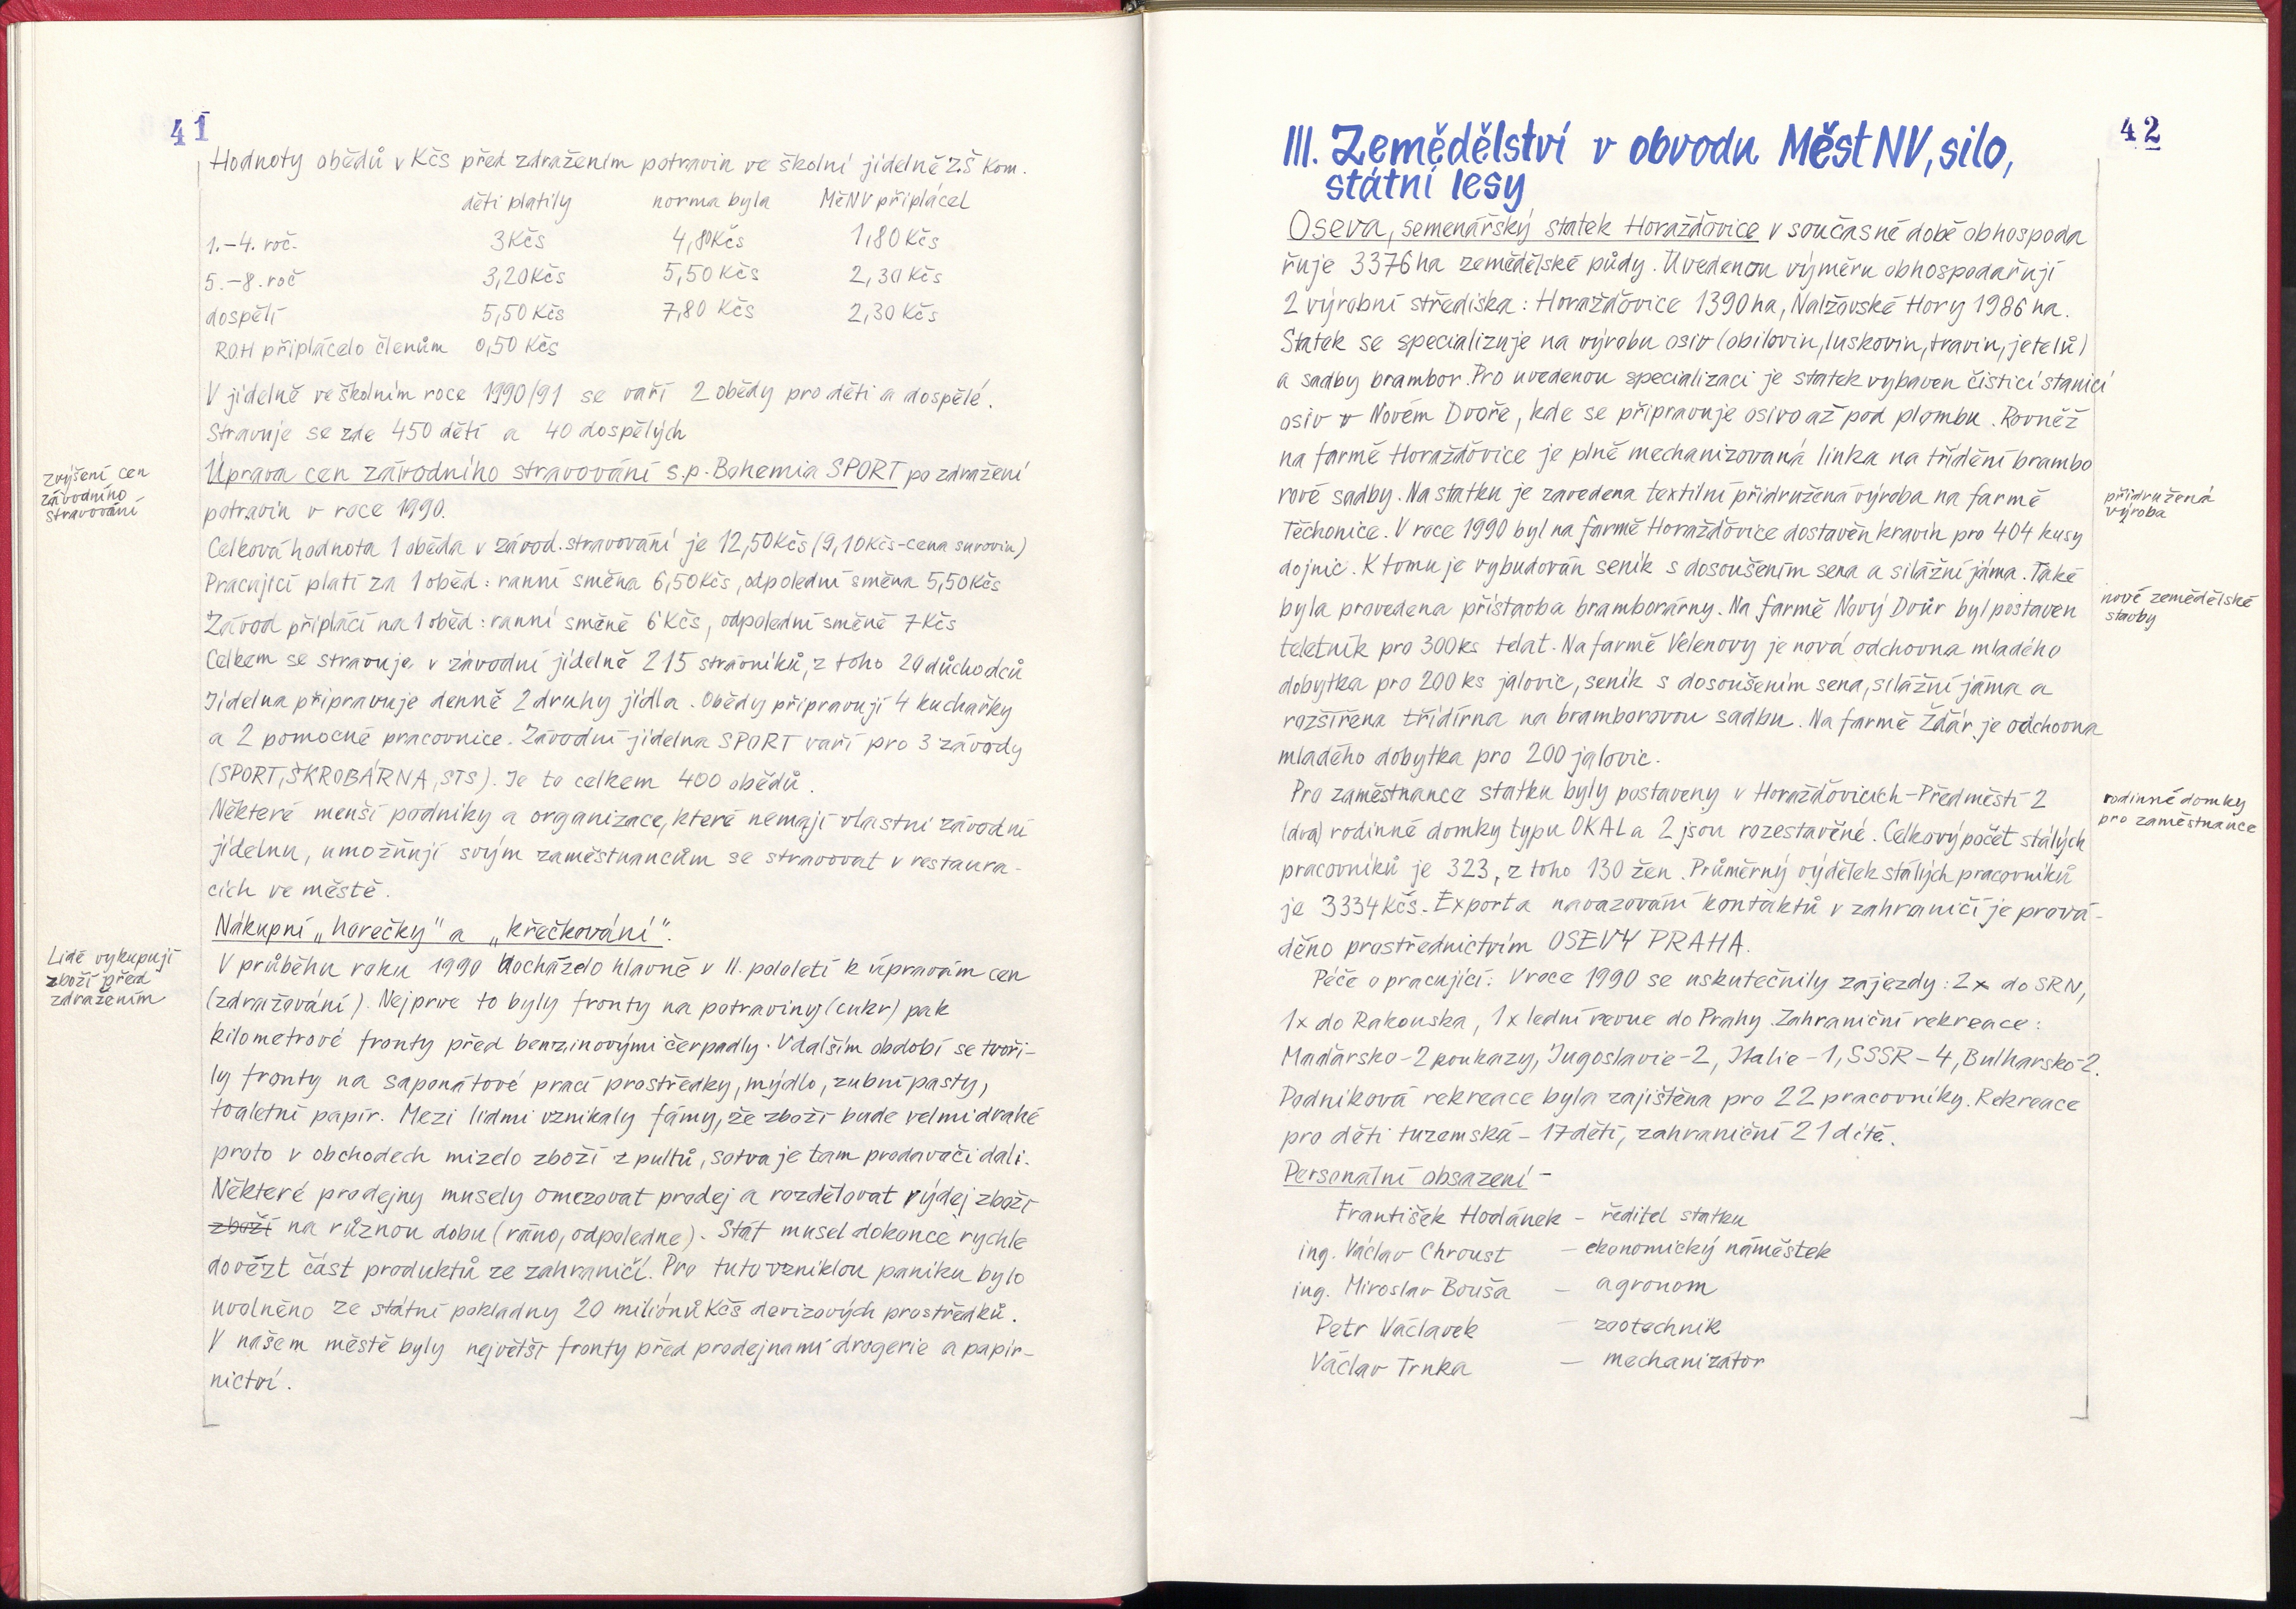 41
Hodnoty obědů v Kčs před zdražením potravin ve školní jídelně ZŠ Kom.
děti platily norma byla MěNV připlácel
1.-4. roč. 3Kčs 4,80Kčs 1,80Kčs
5.-8. roč 3,20Kčs 5,50Kčs 2,30 Kčs
dospělí 5,50 Kčs 7,80 Kčs 2,30 Kčs
ROH připlácelo členům 0,50 Kčs
V jídelně ve školním roce 1990/91 se vaří 2 obědy pro děti a dospělé.
Stravuje se zde 450 dětí a 40 dospělých
zvýšení cen
závodního
stravování
Úprava cen závodního stravování s.p. Bohemia SPORT po zdražení
potravin v roce 1990.
Celková hodnota 1 oběda v závod. stravování je 12,50Kčs (9,10Kčs-cena surovin)
Pracující platí za 1 oběd: ranní směna 6,50Kčs, odpolední směna 5,50Kčs
Závod připlácí na 1 oběd: ranní směně 6 Kčs, odpolední směně 7 Kčs
Celkem se stravuje v závodní jídelně 215 strávníků, z toho 20 důchodců
Jídelna připravuje denně 2 druhy jídla. Obědy připravují 4 kuchařky
a 2 pomocné pracovnice. Závodní jídelna SPORT vaří pro 3 závody
(SPORT, ŠKROBÁRNA, STS). Je to celkem 400 obědů.
Některé menší podniky a organizace, které nemají vlastní závodní
jídelnu, umožňují svým zaměstnancům se stravovat v restaura-
cích ve městě.
Nákupní „horečky" a „křečkování".
Lidé vykupují
zboží před
zdražením
V průběhu roku 1990 docházelo hlavně v II. pololetí k úpravám cen
(zdražování). Nejprve to byly fronty na potraviny (cukr) pak
kilometrové fronty před benzinovými čerpadly. V dalším období se tvoři-
ly fronty na saponátové prací prostředky, mýdlo, zubní pasty,
toaletní papír. Mezi lidmi vznikaly fámy, že zboží bude velmi drahé
proto v obchodech mizelo zboží z pultů, sotva je tam prodavači dali.
Některé prodejny musely omezovat prodej a rozdělovat výdej zboží
zboží na různou dobu (ráno, odpoledne). Stát musel dokonce rychle
dovézt část produktů ze zahraničí. Pro tuto vzniklou paniku bylo
uvolněno ze státní pokladny 20 miliónů Kčs devizových prostředků.
V našem městě byly největší fronty před prodejnami drogerie a papír-
nictví.
42
III. Zemědělství v obvodu Měst NV, silo,
státní lesy
Oseva, semenářský statek Horažďovice v současné době obhospoda
řuje 3376 ha zemědělské půdy. Uvedenou výměru obhospodařují
2 výrobní střediska: Horažďovice 1390 ha, Nalžovské Hory 1986 ha.
Statek se specializuje na výrobu osiv (obilovin, luskovin, travin, jetelů)
a sadby brambor. Pro uvedenou specializaci je statek vybaven čistící stanicí
osiv v Novém Dvoře, kde se připravuje osivo až pod plombu. Rovněž
na farmě Horažďovice je plně mechanizovaná linka na třídění brambo
rové sadby. Na statku je zavedena textilní přidružená výroba na farmě
přidružená
výroba
Těchonice. V roce 1990 byl na farmě Horažďovice dostavěn kravín pro 404 kusy
dojnic. K tomu je vybudován seník s dosoušením sena a silážní jáma. Také
byla provedena přístavba bramborárny. Na farmě Nový Dvůr byl postaven
nové zemědělské
stavby
teletník pro 300ks telat. Na farmě Velenovy je nová odchovna mladého
dobytka pro 200 ks jalovic, seník s dosoušením sena, silážní jáma a
rozšířena třídírna na bramborovou sadbu. Na farmě Žďár je odchovna
mladého dobytka pro 200 jalovic.
Pro zaměstnance statku byly postaveny v Horažďovicích-Předměstí 2
rodinné domky
pro zaměstnance
(dva) rodinné domky typu OKAL a 2 jsou rozestavěné. Celkový počet stálých
pracovníků je 323, z toho 130 žen. Průměrný výdělek stálých pracovníků
je 3334Kčs. Export a navazování kontaktů v zahraničí je prová-
děno prostřednictvím OSEVY PRAHA.
Péče o pracující: V roce 1990 se uskutečnily zájezdy: 2x do SRN,
1x do Rakouska, 1x lední revue do Prahy. Zahraniční rekreace:
Maďarsko-2 poukazy, Jugoslavie-2, Italie-1, SSSR-4, Bulharsko-2.
Podniková rekreace byla zajištěna pro 22 pracovníky. Rekreace
pro děti tuzemská - 17 dětí, zahraniční 21 dítě.
Personální obsazení -
František Hodánek - ředitel statku
ing. Václav Chroust - ekonomický náměstek
ing. Miroslav Bouša - agronom
Petr Václavek - zootechnik
Václav Trnka - mechanizátor